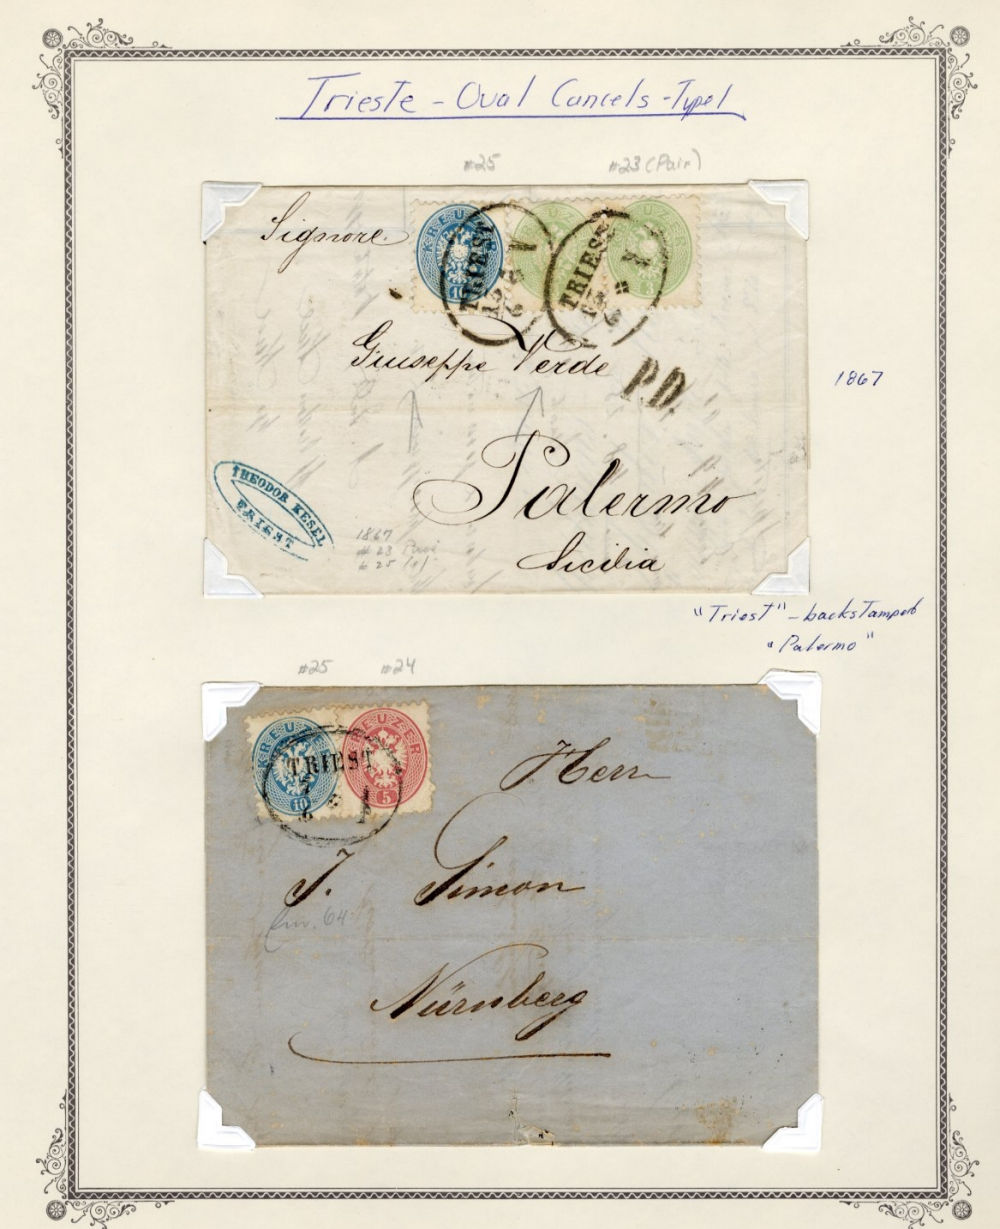 Trieste - Oval Cancels - Type I
#25 #23 (Pair)
Signore
KREUZER
10
3
TRIEST
TRIEST
Giuseppe Verde
P.D.
1867
Palermo
Sicilia
THEODOR KESEL
TRIEST
1867
# 23 Pair
& 25
"Triest" - backstamped
"Palermo"
#25 #24
KREUZER
10
KREUZER
5
TRIEST
Herrn
J. Simon
64
Nürnberg